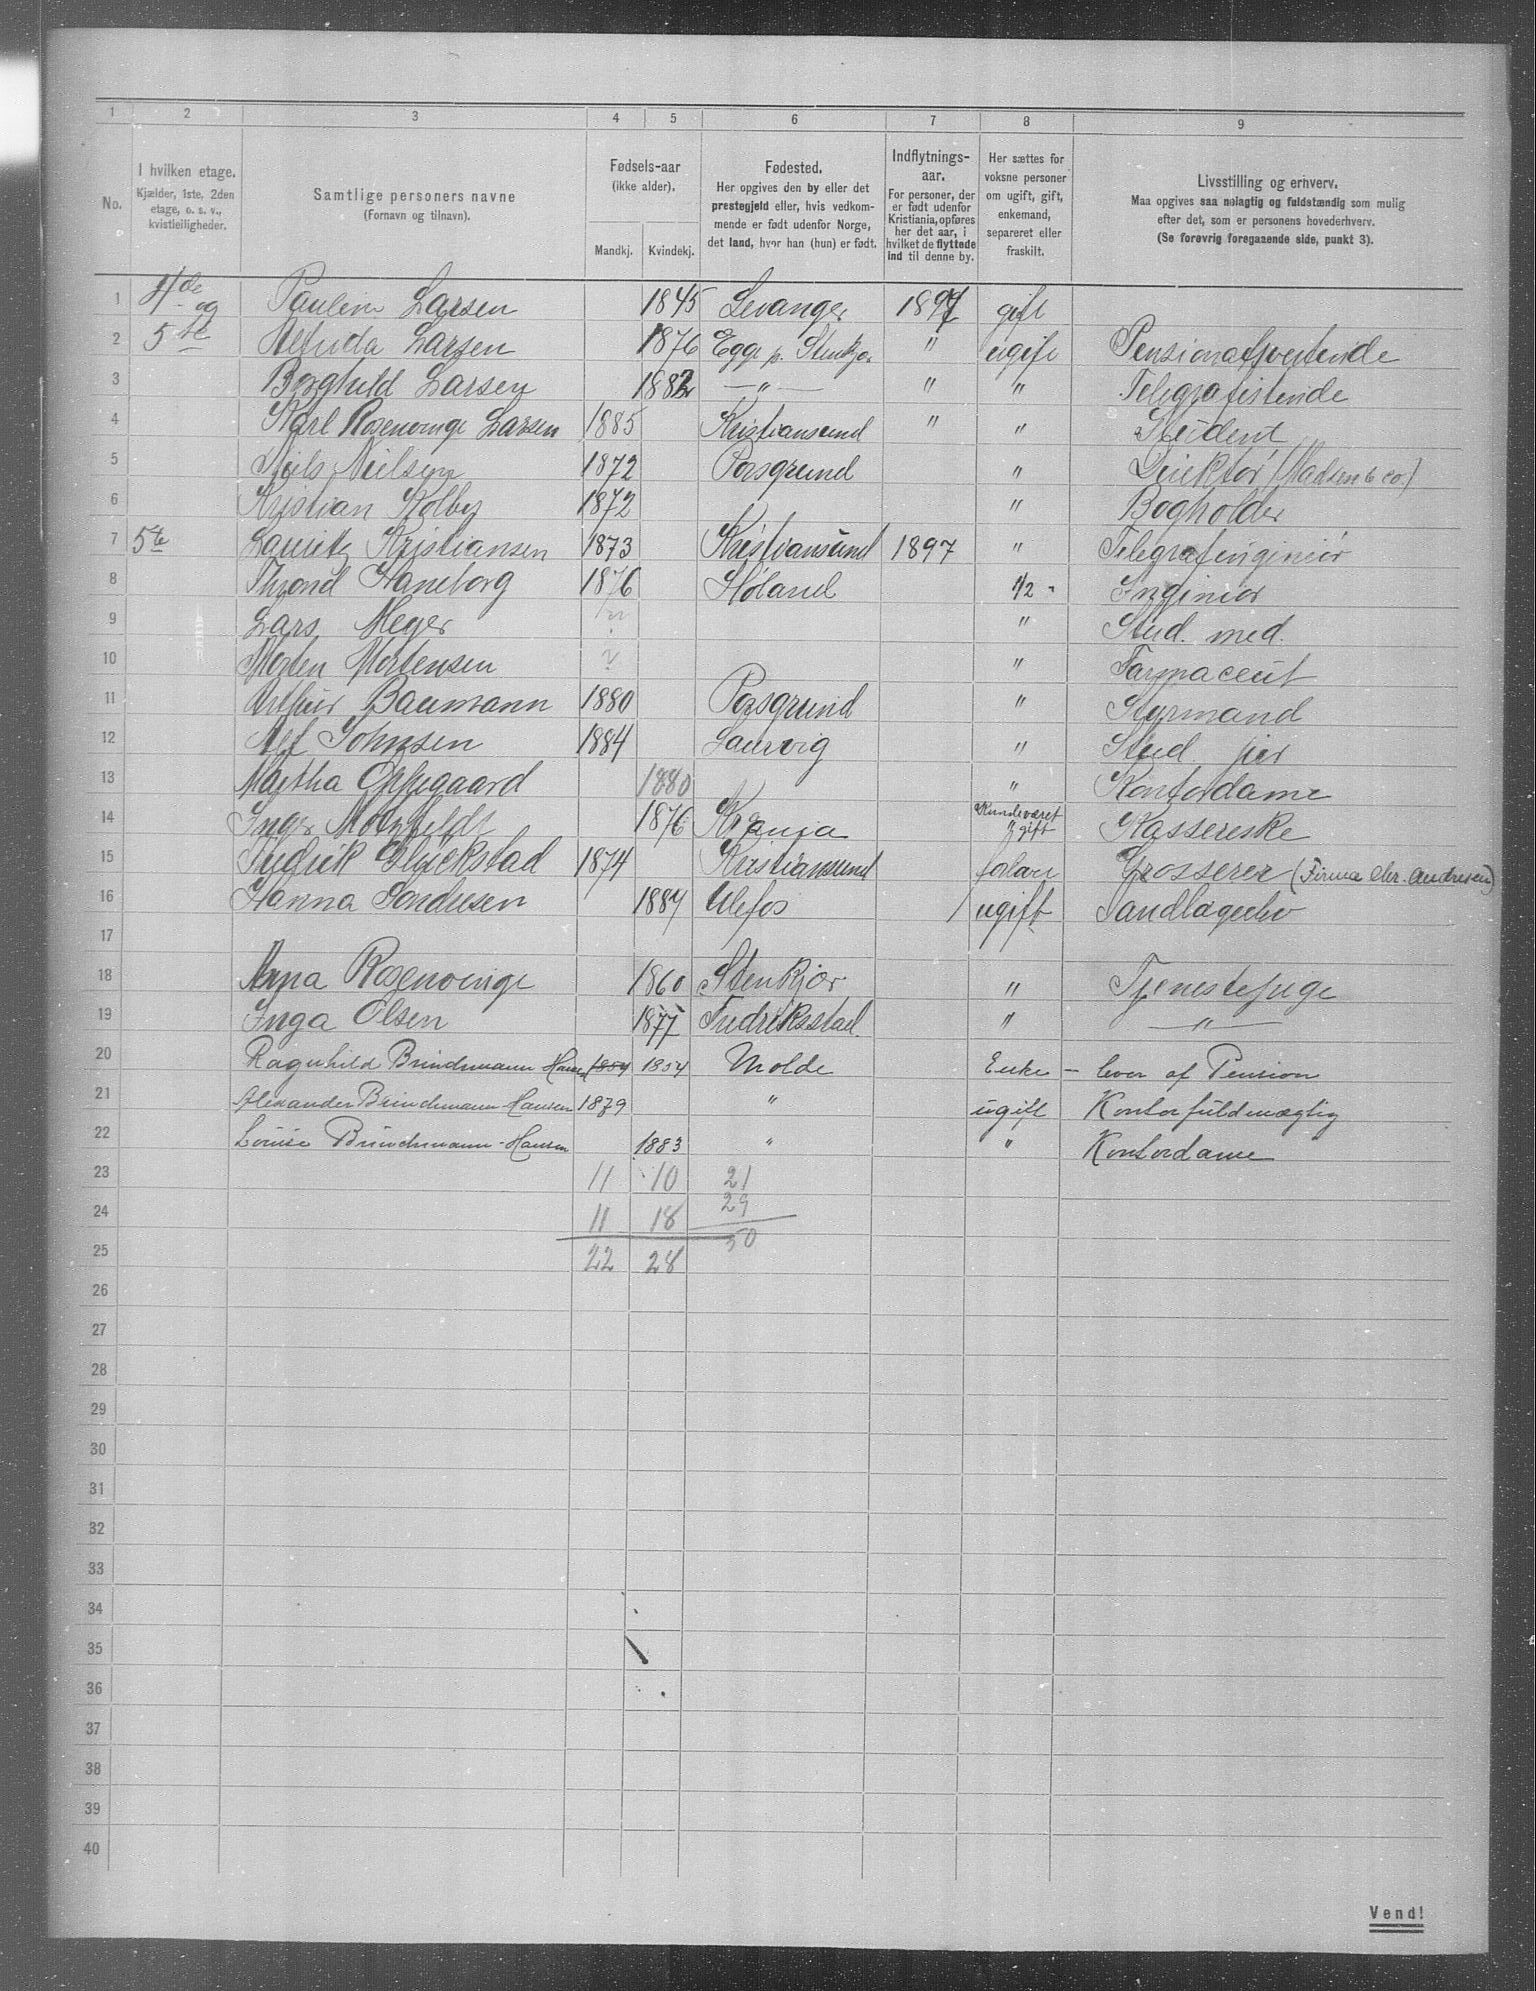 1 2 3 4 5 6 7 8 9
No.
I hvilken etage.
Kjælder, 1ste, 2den
etage, o. s. v.,
kvistleiligheder.
Samtlige personers navne
(Fornavn og tilnavn).
Fødsels-aar
(ikke alder).
Mandkj. Kvindekj.
Fødested.
Her opgives den by eller det
prestegjeld eller, hvis vedkom-
mende er født udenfor Norge,
det land, hvor han (hun) er født.
Indflytnings-
aar.
For personer, der
er født udenfor
Kristiania, opføres
her det aar, i
hvilket de flyttede
ind til denne by.
Her sættes for
voksne personer
om ugift, gift,
enkemand,
separeret eller
fraskilt.
Livsstilling og erhverv.
Maa opgives saa nøiagtig og fuldstændig som mulig
efter det, som er personens hovederhverv.
(Se forøvrig foregaaende side, punkt 3).
1 4de og Pauline Larsen 1845 Levanger 1897 gift
2 5te Alfrida Larsen 1876 Egge p. Stenkjær " ugift
3 Borghild Larsen 1882 — " — " " Telegrafistinde
4 Karl Rosenvinge Larsen 1885 Kristiansund " " Student
5 Niels Nielsen 1872 Porsgrund " Direktør (Madsen & co.)
6 Kristian Kolby 1872 " Bogholder
7 5te Lauritz Kristiansen 1873 Kristiansund 1897 " Telegrafingeniør
8 Thrond Haneborg 1876 Høland 1/2 - Ingeniør
9 Lars Meyer " Stud. med.
10 Morten Mortensen ? " Farmaceut
11 Arthur Baumann 1880 Porsgrund " Styrmand
12 Alf Johnsen 1884 Laurvig " Stud jur
13 Martha Oppegaard 1880 " Kontordame
14 Inger Motzfeldt 1876 Kr.ania Kunde været gift Kassereske
15 Fredrik Glückstad 1874 Kristiansund Grosserer (Firma Chr. Andresen)
16 Hanna Sondresen 1887 Ulefos / ugift
17
18 Anna Rosenvinge 1860 Stenkjær " Tjenestepige
19 Inga Olsen 1877 Fredriksstad. " — " —
20 Ragnhild Brinchmann Hansen 1854 1854 Molde Enke — lever af Pension
21 Alexander Brinchmann-Hansen 1879 " ugift Kontorfuldmægtig
22 Louise Brinchmann-Hansen 1883 " " Kontordame
23 11 10 21
24 11 18 29
25 22 28 50
26
27
28
29
30
31
32
33
34
35
36
37
38
39
40
Vend!